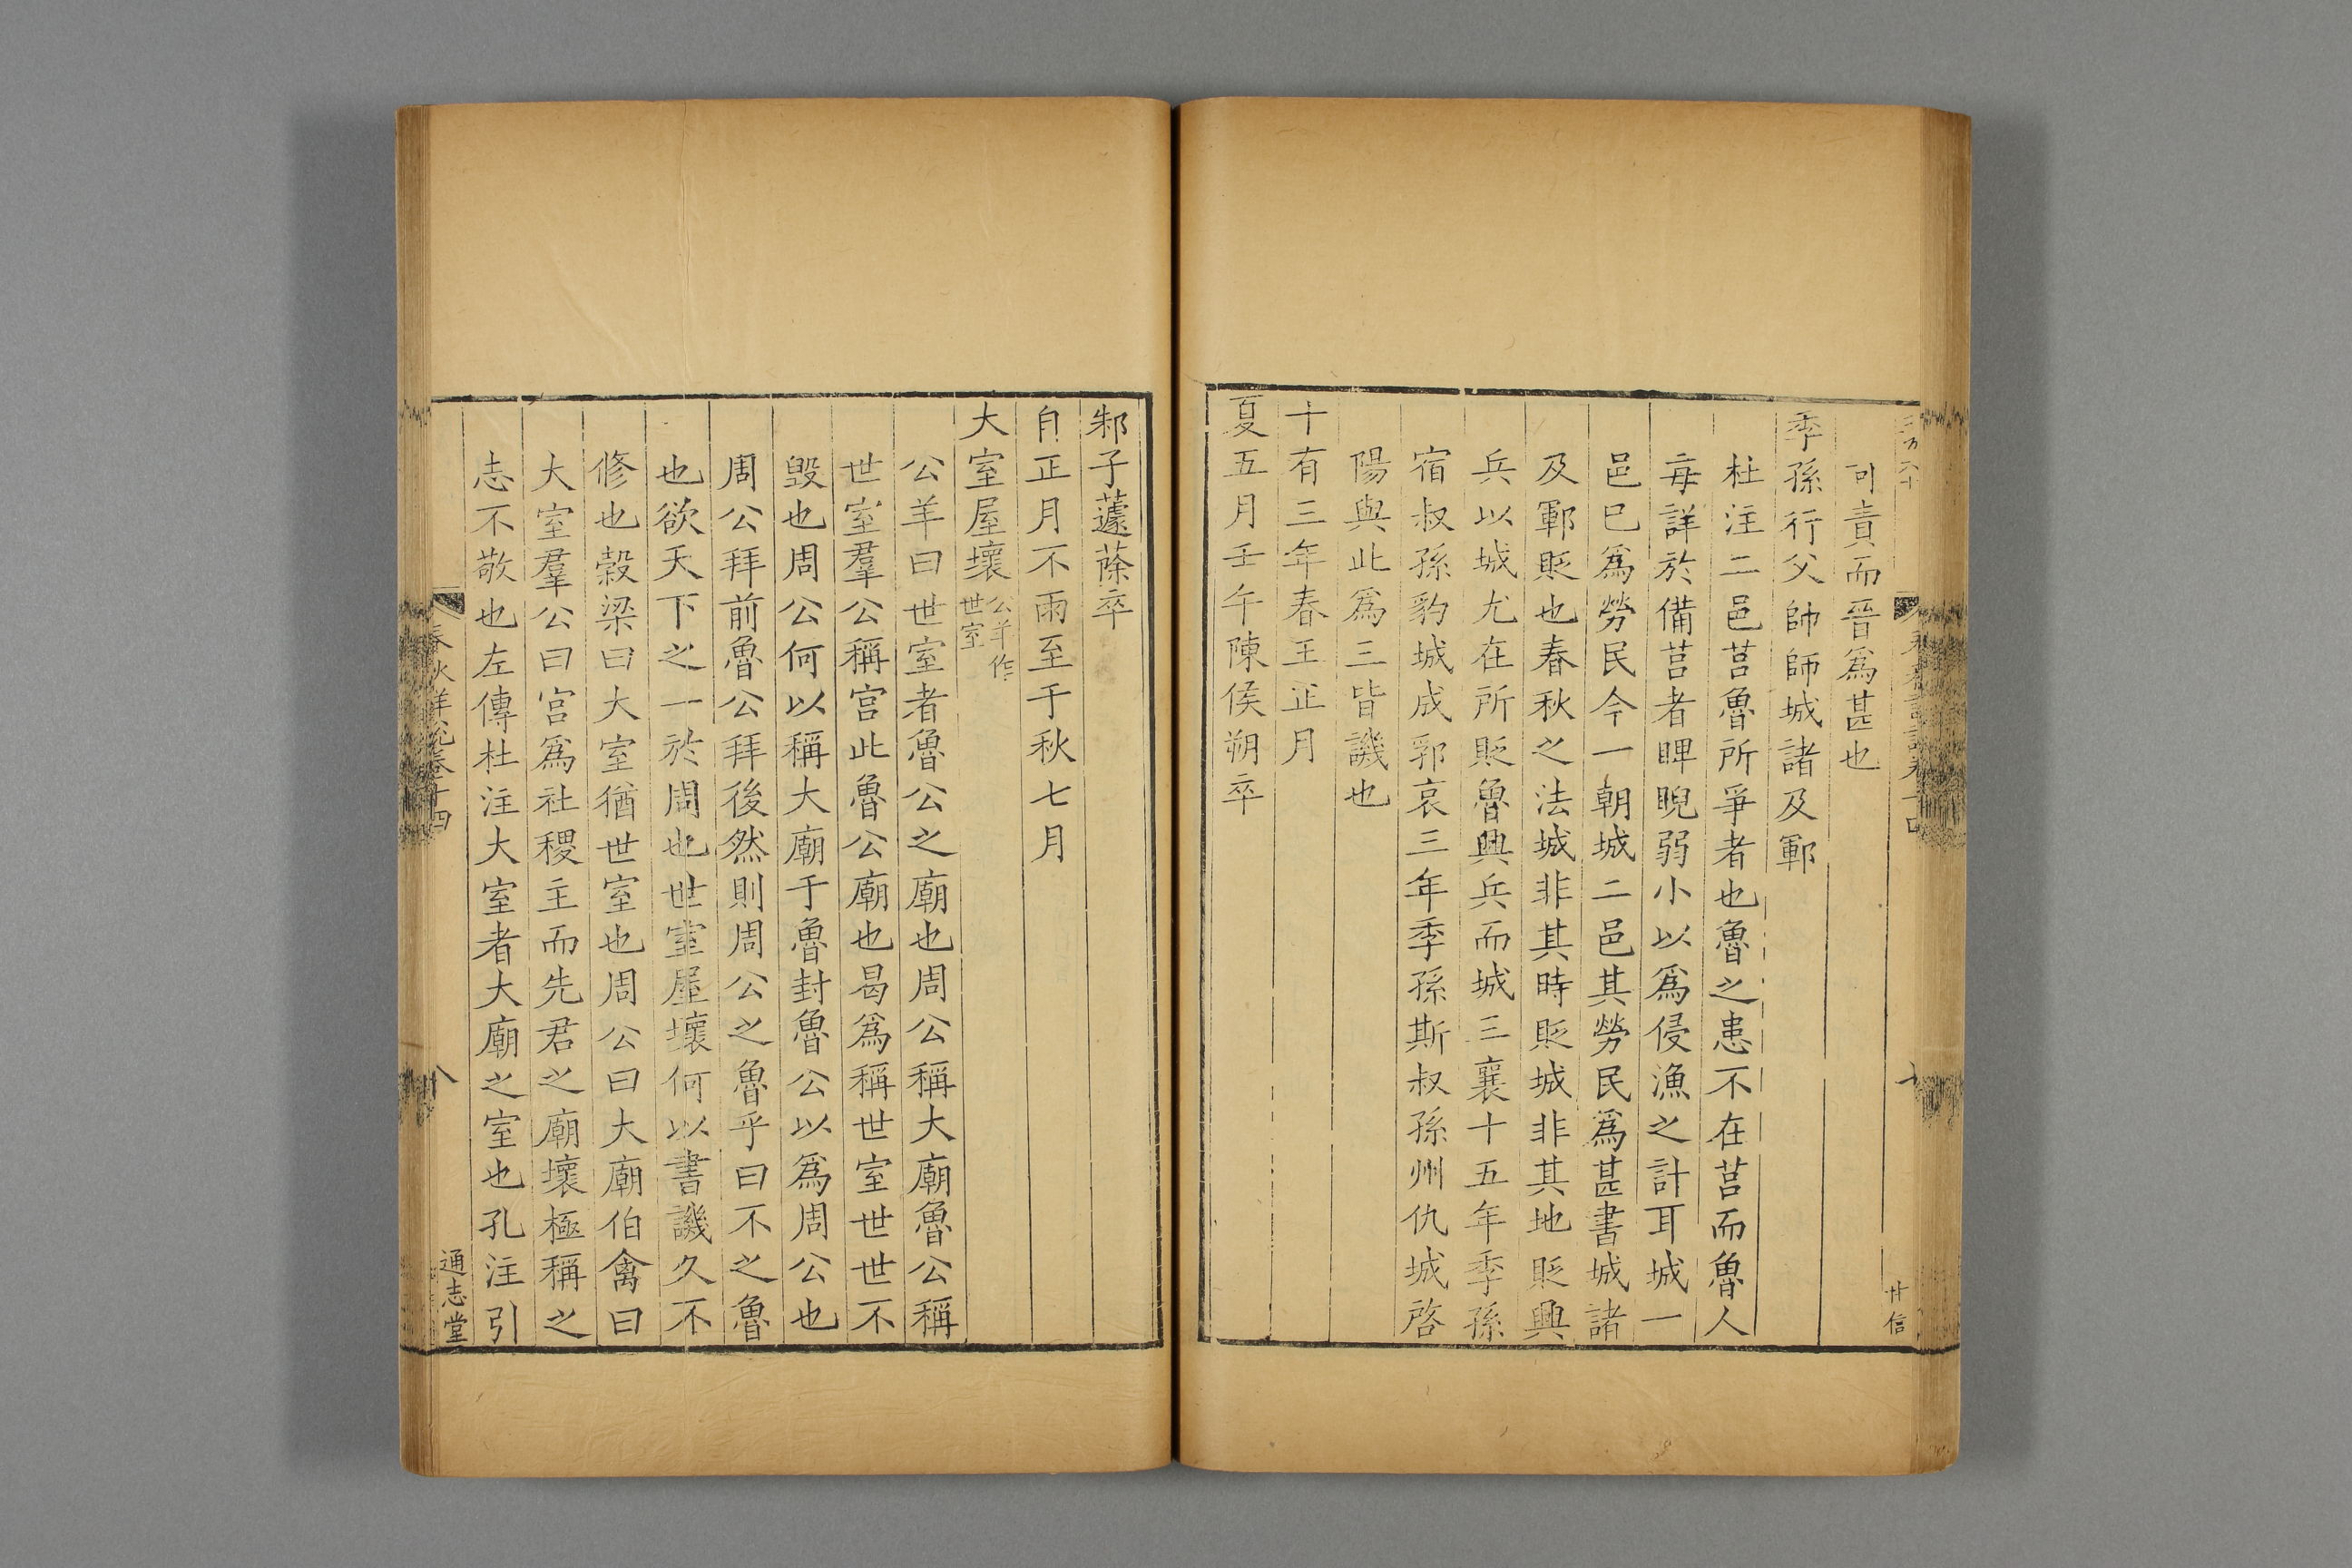 可責而晉為甚也
季孫行父帥師城諸及鄆
杜注二邑莒魯所爭者也魯之患不在莒而魯人
每詳於備莒者睥睨弱小以為侵漁之計耳城一
邑已為勞民今一朝城二邑其勞民為甚書城諸
及鄆貶也春秋之法城非其時貶城非其地貶興
兵以城尤在所貶魯興兵而城三襄十五年季孫
宿叔孫豹城成郛哀三年季孫斯叔孫州仇城啓
陽與此為三皆譏也
十有三年春王正月
夏五月壬午陳侯朔卒
甘信
邾子蘧蒢卒
自正月不雨至于秋七月
大室屋壞公羊作世室
公羊曰世室者魯公之廟也周公稱大廟魯公稱
世室羣公稱宮此魯公廟也曷為稱世室世世不
毀也周公何以稱大廟于魯封魯公以為周公也
周公拜前魯公拜後然則周公之魯乎曰不之魯
也欲天下之一於周也世室屋壞何以書譏久不
修也穀梁曰大室猶世室也周公曰大廟伯禽曰
大室羣公曰宮為社稷主而先君之廟壞極稱之
志不敬也左傳杜注大室者大廟之室也孔注引
春秋詳說卷十四
八
通志堂